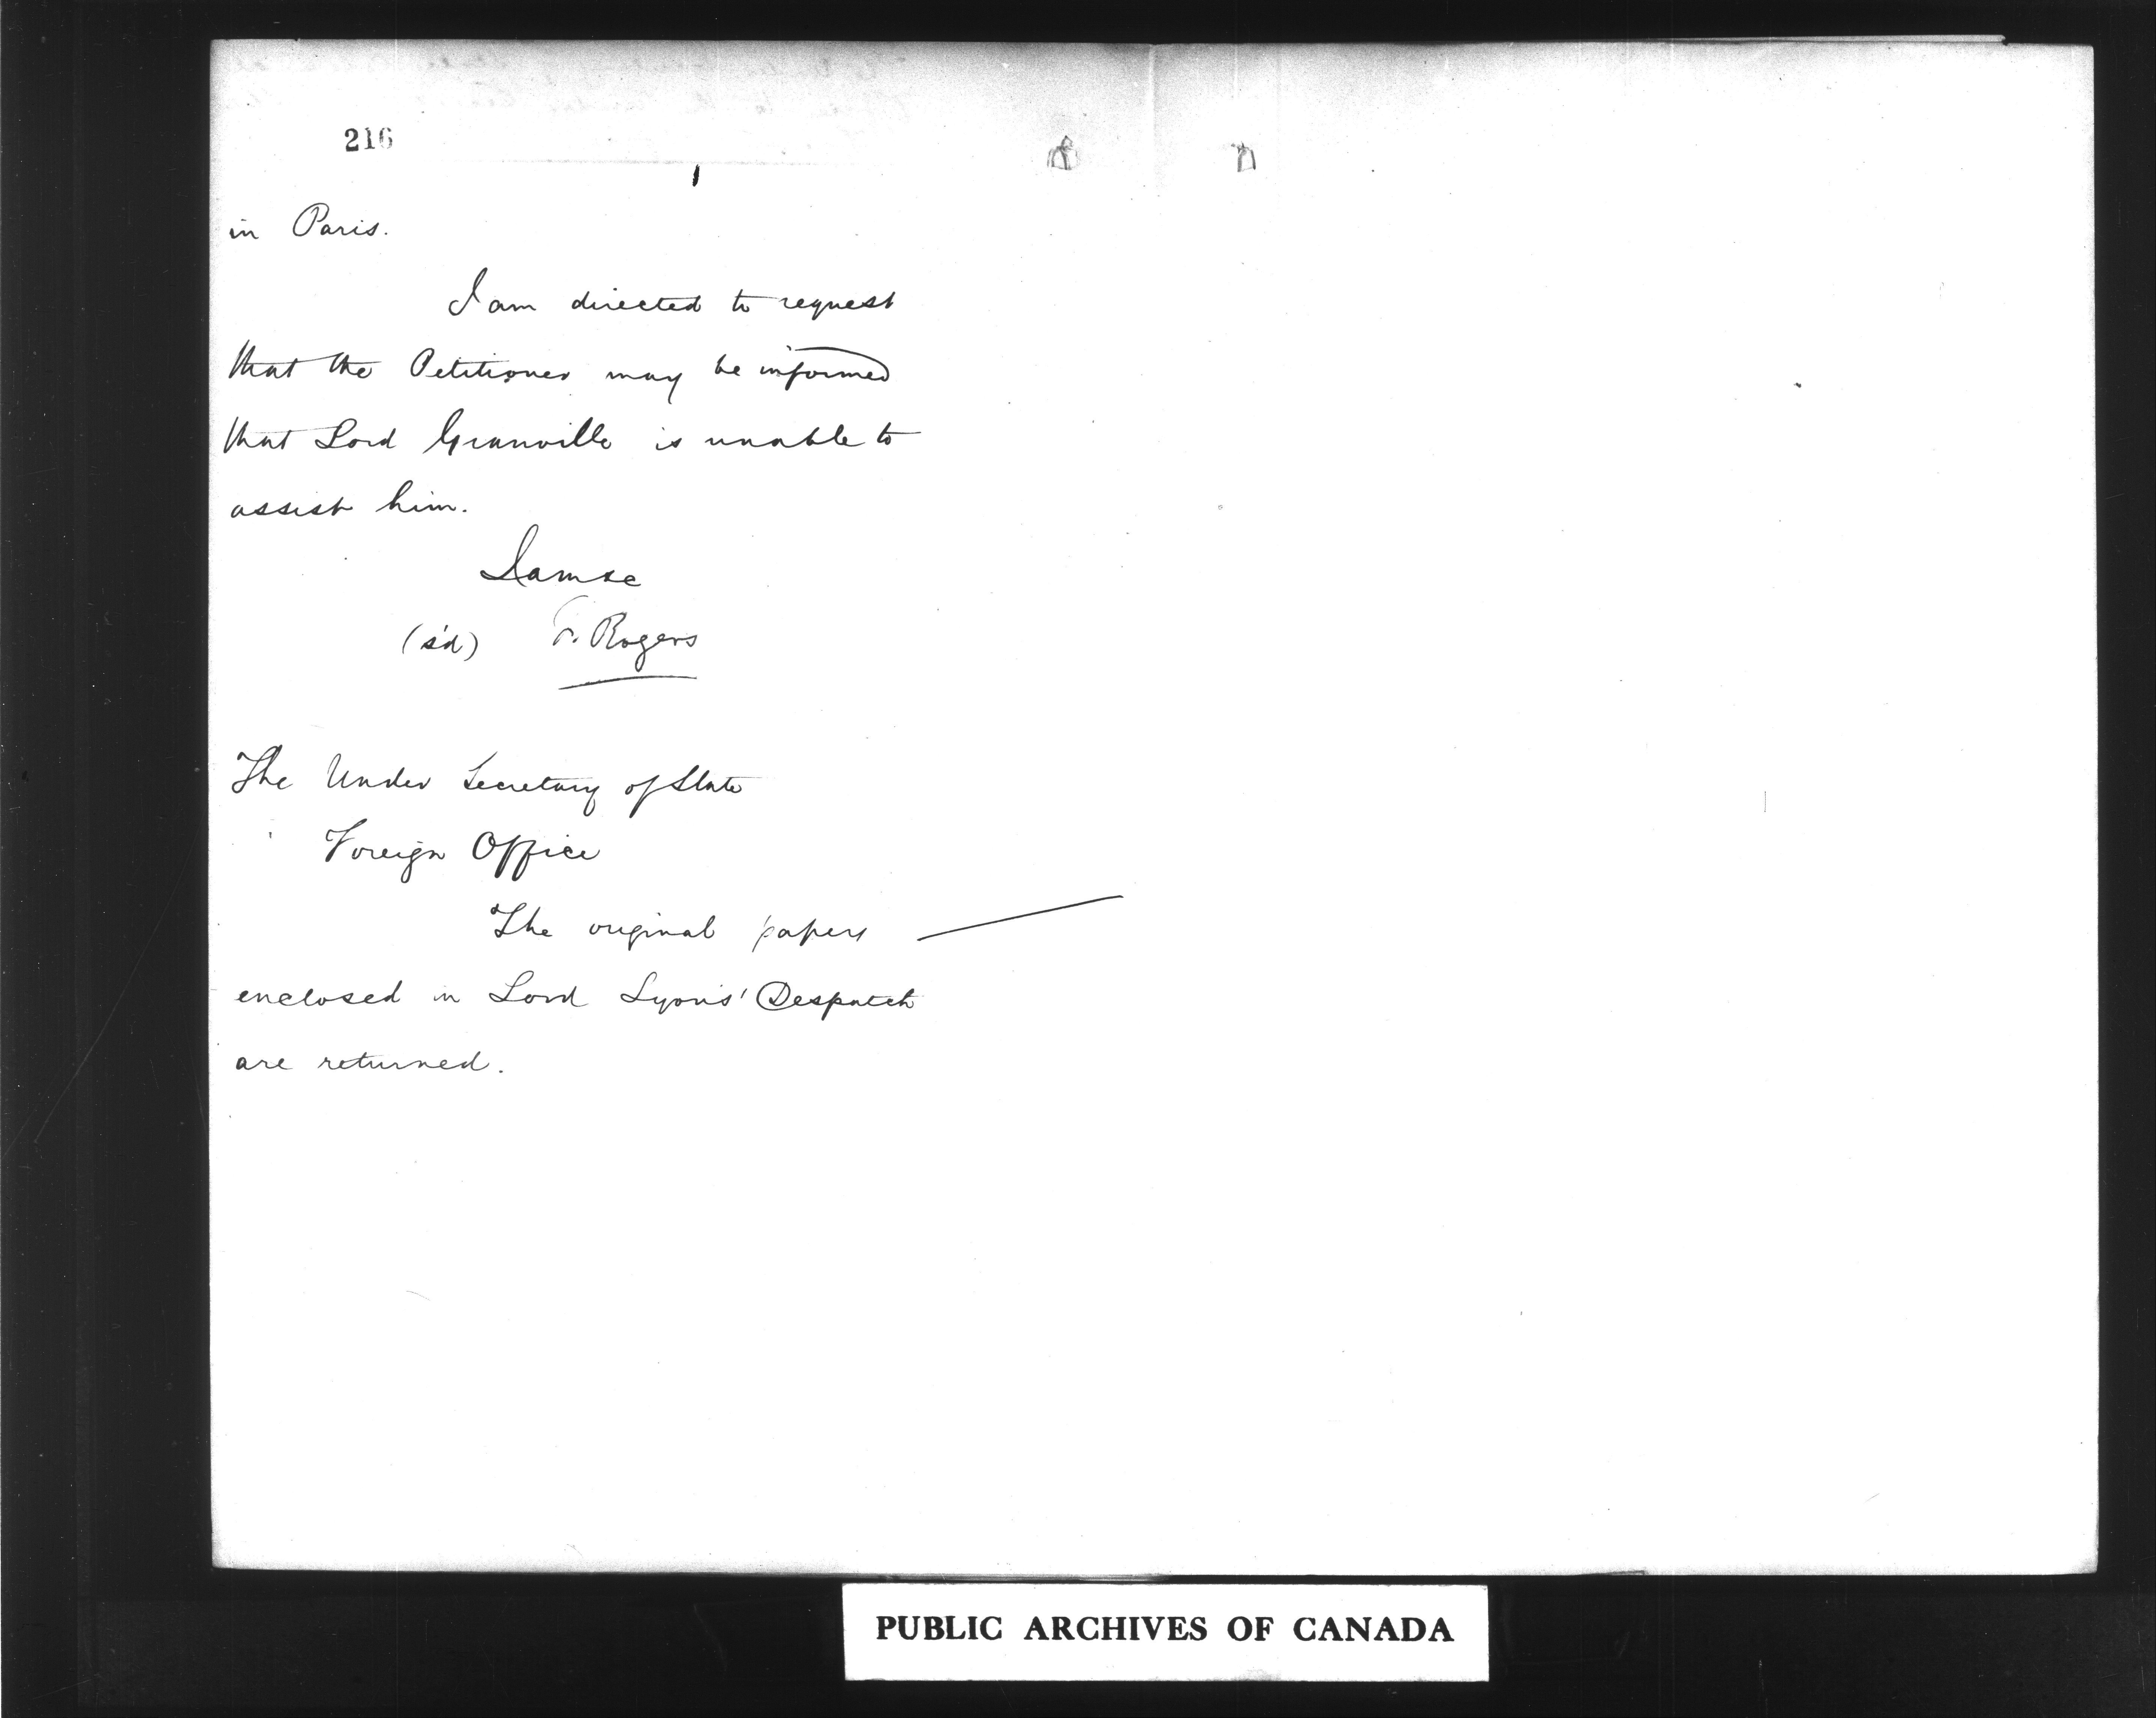 216
in Paris.
I am directed to request
that the Petitioner may be informed
that Lord Granville is unable to
assist him.
I am &c
(s'd) F. Rogers
The Under Secretary of State
Foreign Office
The original papers
enclosed in Lord Lyons' Despatch
are returned.
PUBLIC ARCHIVES OF CANADA